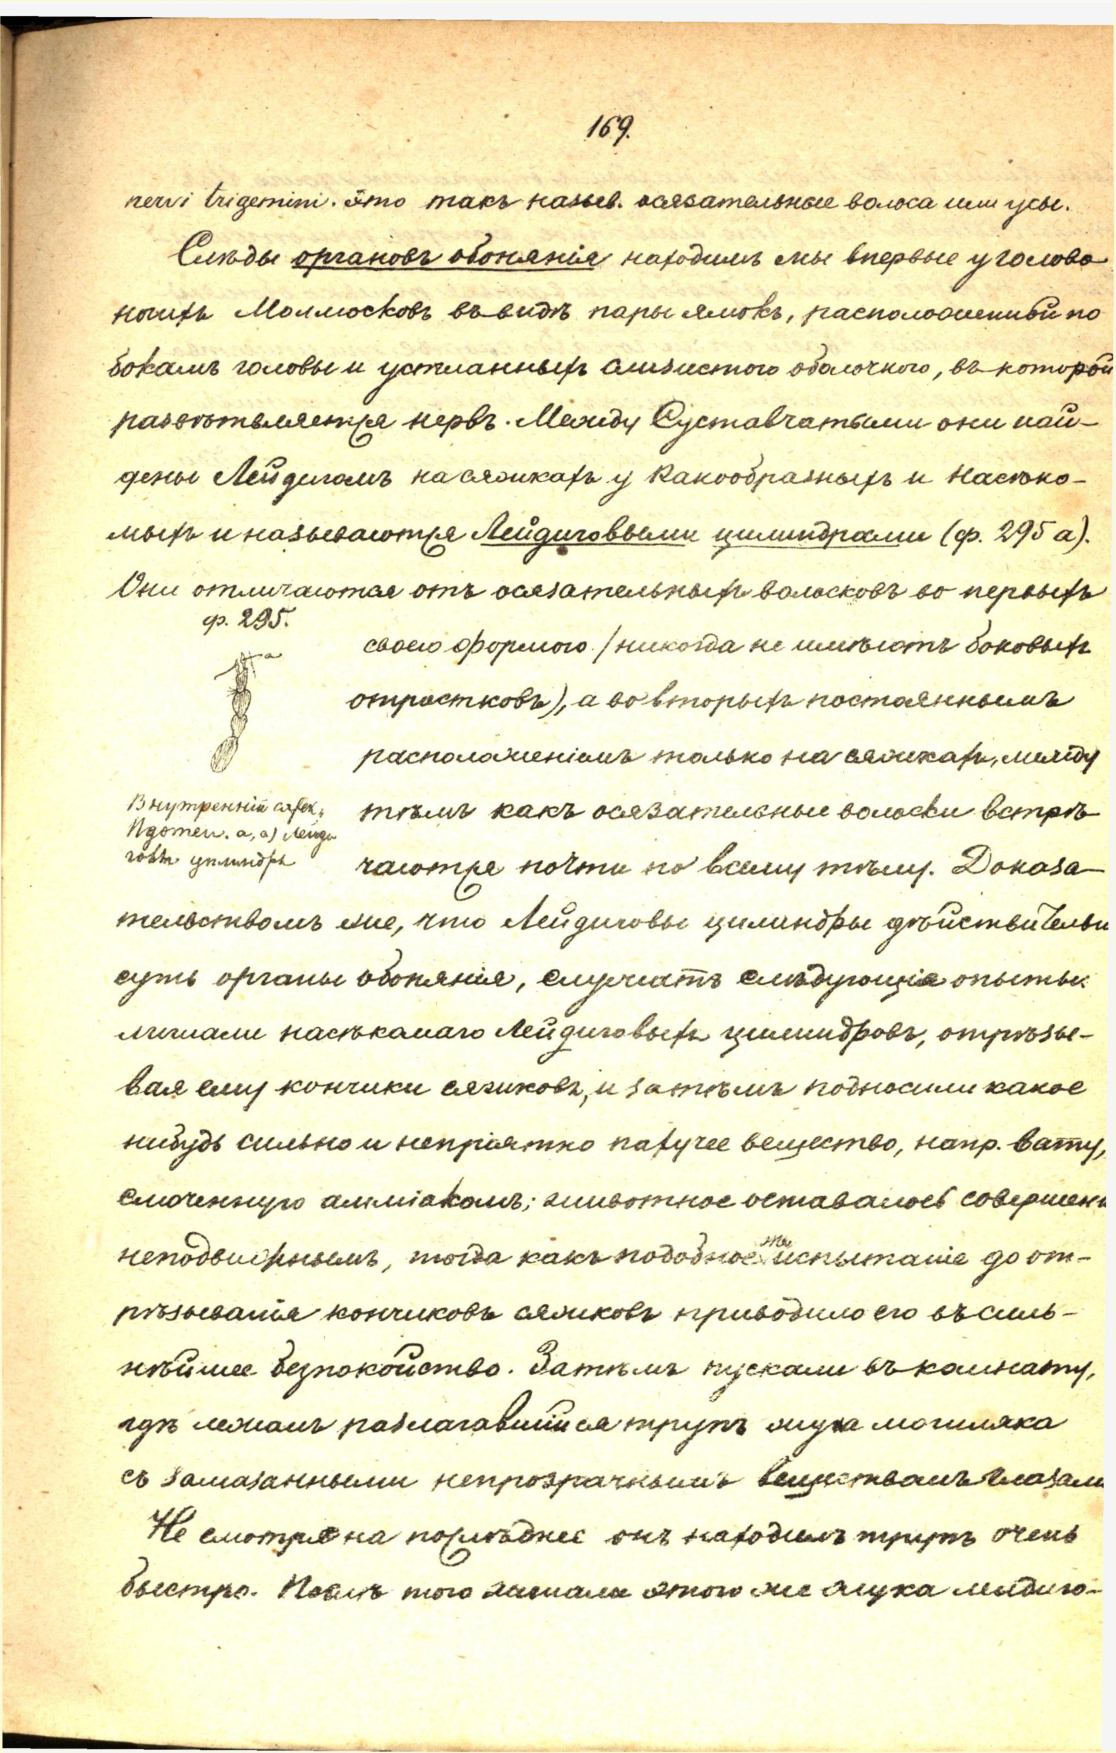 169.
nervi trigemini. Это такъ назыв. осязательные волоса или усы.
Слѣды органовъ обонянія находимъ мы впервые у голово
ногихъ Моллюсковъ въ видѣ пары ямокъ, расположенный по
бокамъ головы и устланныхъ слизистого оболочкого, въ которой
развѣтвляется нервъ. Между Суставчатыми они най-
дены Лейдигомъ на сяжкахъ у Ракообразныхъ и Насѣко-
мыхъ и называются Лейдиговыми цилиндрами (ф. 295 а).
Они отличаются отъ осязательныхъ волосковъ во первыхъ
ф. 295.
своею формою (никогда не имѣютъ боковыхъ
а
отростковъ), а во вторыхъ постояннымъ
расположеніемъ только на сяжкахъ, между
Внутренній сяжек.
Идотеи. а, а) Лейди
говы цилиндры
тѣмъ какъ осязательные волоски встрѣ-
чаются почти по всему тѣлу. Доказа-
тельствомъ же, что Лейдиговы цилиндры дѣйствительн
суть органы обонянія, служатъ слѣдующіе опыты:
лишали насѣкомаго Лейдиговыхъ цилиндровъ, отрѣзы-
вая ему кончики сяжковъ, и затѣмъ подносили какое
нибудь сильно и непріятно пахучее вещество, напр. вату,
смоченную амміакомъ; животное оставалось совершенн
неподвижнымъ, тогда какъ подобное же испытаніе до от-
рѣзыванія кончиковъ сяжковъ приводило его въ силь-
нѣйшее безпокойство. Затѣмъ пускали въ комнату,
гдѣ лежалъ разлагавшійся трупъ жука могиляка
съ замазанными непрозрачнымъ веществомъ глазами
Не смотря на послѣднее онъ находилъ трупъ очень
быстро. Послѣ того лишали этого же жука лейдиго-